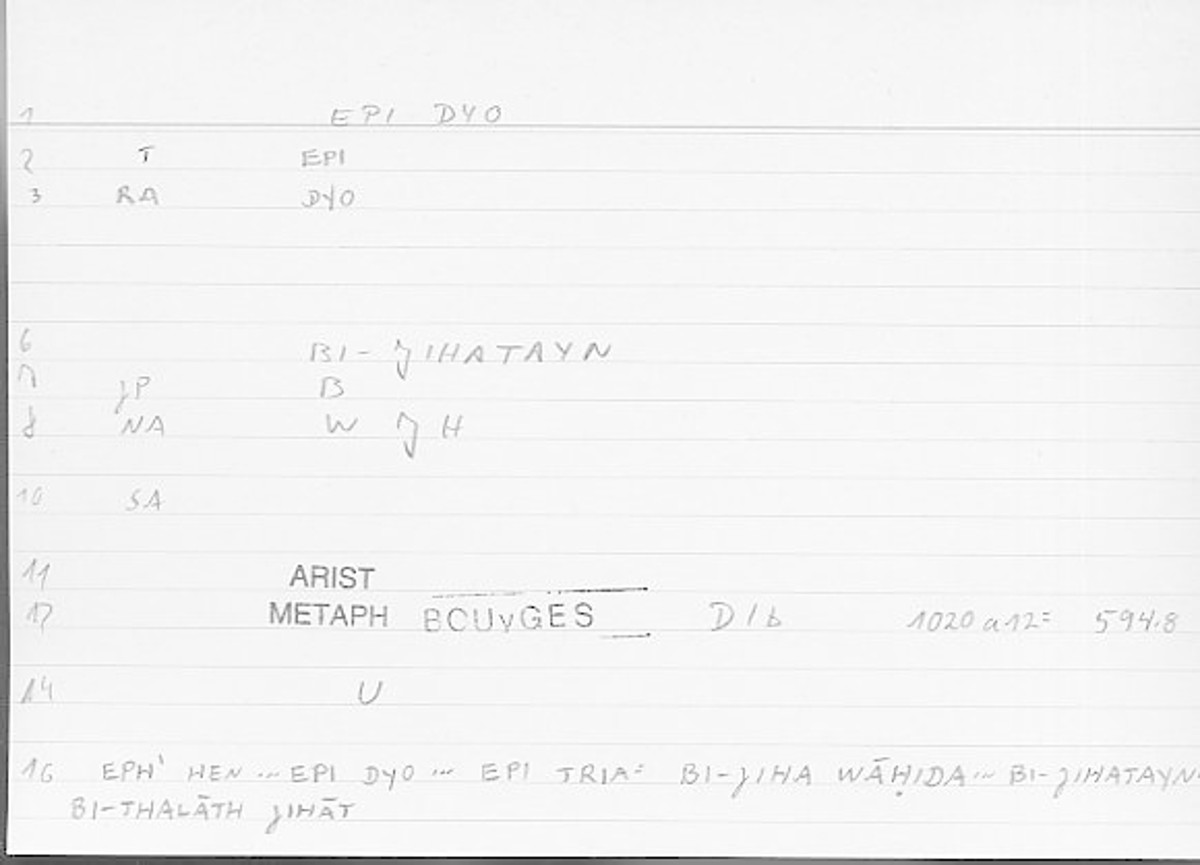 1 EPI DYO
2 T EPI
3 RA DYO
6 BI-JIHATAYN
7 JP B
8 NA W J H
10 SA
11 ARIST
12 METAPH BOUYGES D16 1020a12= 594.8
14 U
16 EPH' HEN ... EPI DYO ... EPI TRIA = BI-JIHA WĀḤIDA ... BI-JIHATAYN
BI-THALĀTH JIHĀT